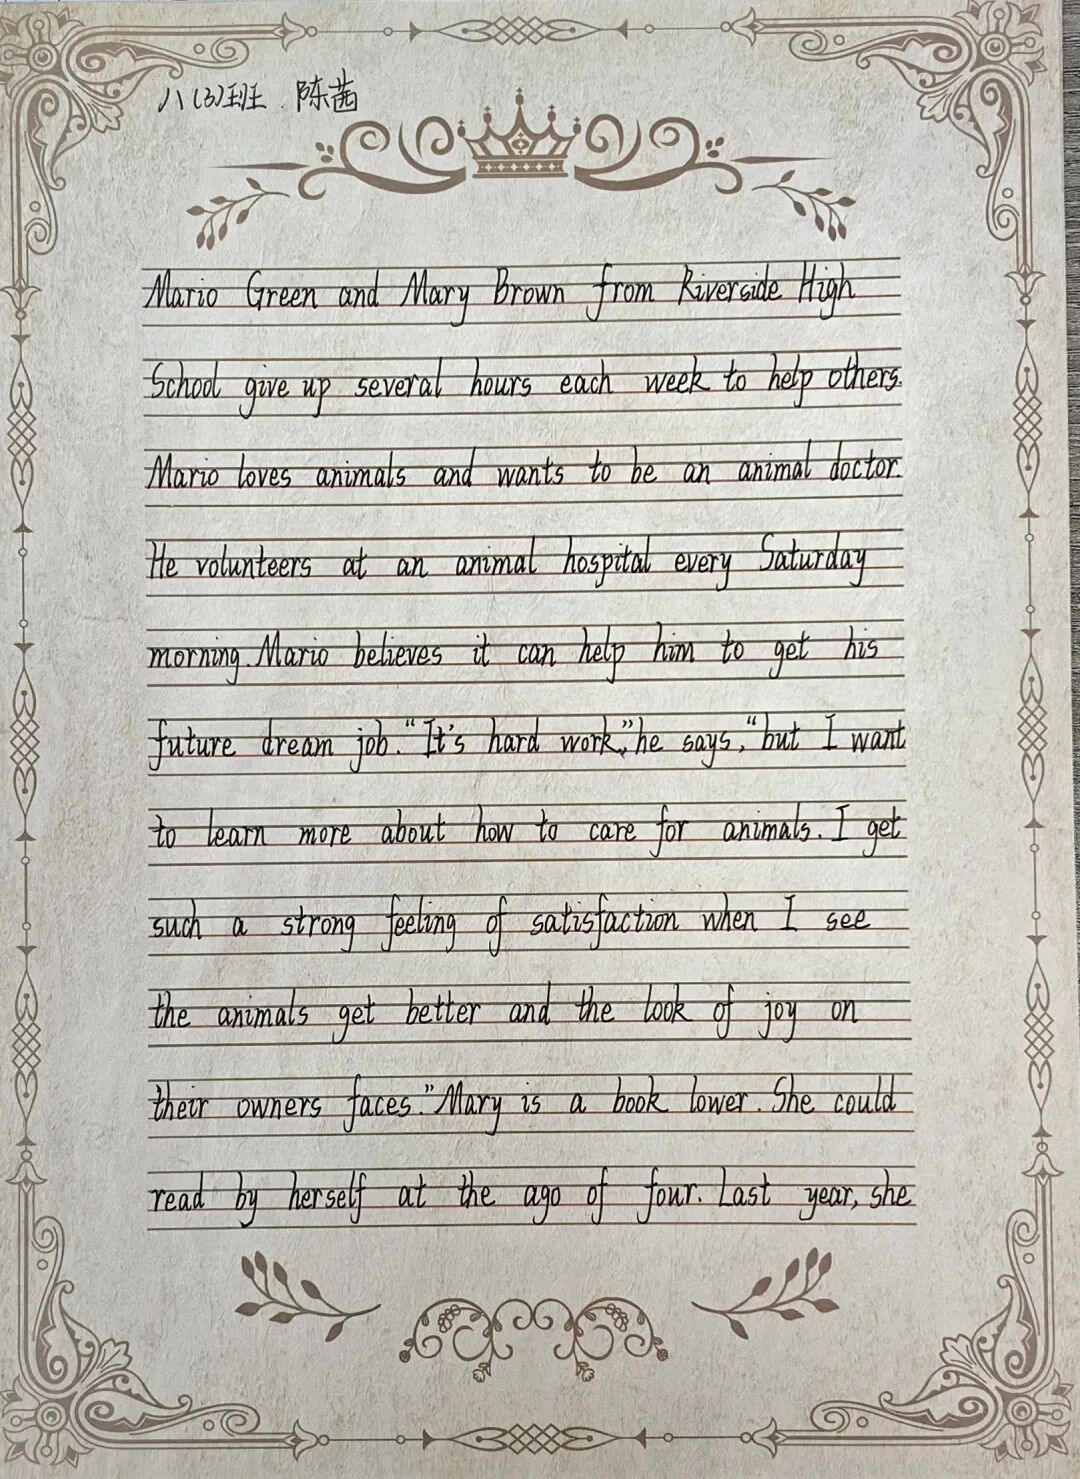 八(3)班. 陈茜
Mario Green and Mary Brown from Riverside High
School give up several hours each week to help others.
Mario loves animals and wants to be an animal doctor.
He volunteers at an animal hospital every Saturday
morning. Mario believes it can help him to get his
future dream job. “It's hard work,” he says, “but I want
to learn more about how to care for animals. I get
such a strong feeling of satisfaction when I see
the animals get better and the look of joy on
their owners faces.” Mary is a book lower. She could
read by herself at the ago of four. Last year, she